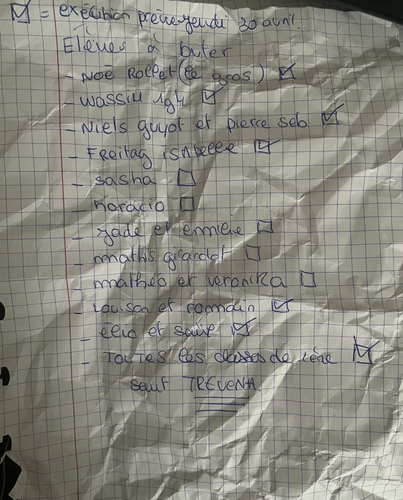 ☑ = exécution prévue jeudi 30 avril.
Elèves à buter
- Noé Rollet (le gros) ☑
- wassim 1g4 ☑
- Niels guyot et pierre seb ☑
- Freitag isabelle ☑
- sasha ☐
- horacio ☐
- jade et ☐
- mathis girardot ☐
- mathéo et veronika ☐
- Louison et rommain ☑
- et ☑
- TOUTES les classes de 1ère ☑
sauf TREVENA